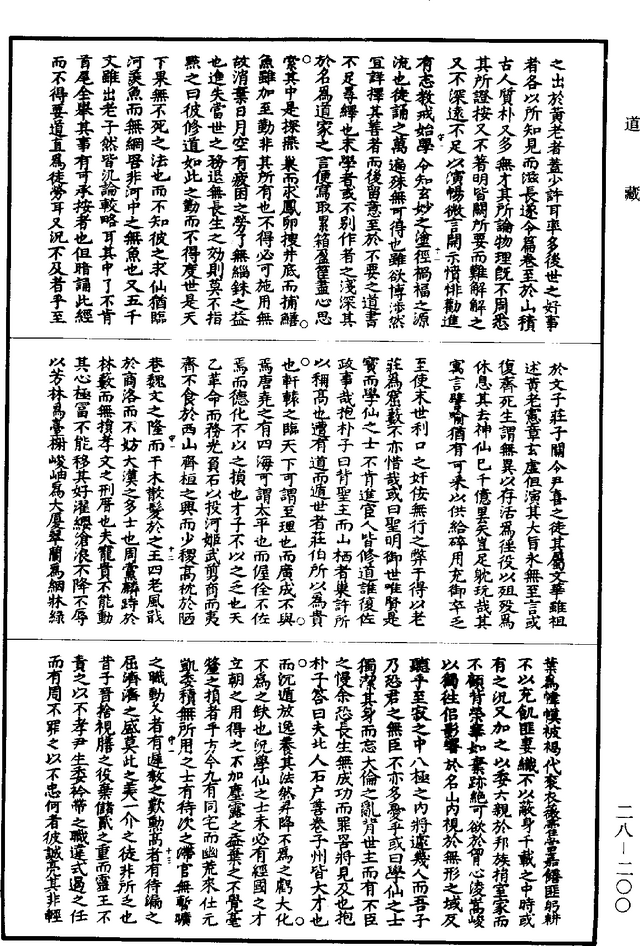 道藏
之出於黃老者蓋少許耳率多後世之好事
者各以所知見而滋長遂令篇卷至於山積
古人質朴又多無才其所論物理既不周悉
其所證按又不著明皆闕所要而難解解之
又不深遠不足以演暢微言開示憤悱勸進
有志教戒始學令知玄妙之塗徑禍福之源
流也徒誦之萬遍殊無可得也雖欲博涉然
宜詳擇其善者而後留意至於不要之道書
不足尋繹也末學者或不別作者之淺深其
於名為道家之言便寫取累箱盈筐盡心思
索其中是探燕巢而求鳳卵搜井底而捕鱔
魚雖加至勤非其所有也不得必可施用無
故消棄日月空有疲困之勞了無錙銖之益
也進失當世之務退無長生之效則莫不指
點之曰彼修道如此之勤而不得度世是天
下果無不死之法也而不知彼之求仙猶臨
河羨魚而無網罟非河中之無魚也又五千
文雖出老子然皆汎論較略耳其中了不肯
首尾全舉其事有可承按者也但暗誦此經
而不得要道直為徒勞耳又況不及者乎至
於文子莊子關令尹喜之徒其屬文華雖祖
述黃老憲章玄虛但演其大旨永無至言或
復齊死生謂無異以存活為徭役以殂殁為
休息其去神仙已千億里矣豈足躭玩哉其
寓言譬喻猶有可采以供給碎用充御卒乏
至使末世利口之奸佞無行之弊子得以老
莊為窟藪不亦惜哉或曰聖明御世唯賢是
寶而學仙之士不肯進宦人皆修道誰復佐
政事哉抱朴子曰背聖主而山栖者巢許所
以稱高也遭有道而遁世者莊伯所以為貴
也軒轅之臨天下可謂至理也而廣成不與
焉唐堯之有四海可謂太平也而偓佺不佐
焉而德化不以之損也才子不以之乏也天
乙革命而務光負石以投河姬武剪商而夷
齊不食於西山齊桓之興而少稷高枕於陋
巷魏文之隆而干木散髮於之王四老鳳戢
於商洛而不妨大漢之多士也周黨麟跱於
林藪而無損孝文之刑厝也夫寵貴不能動
其心極富不能移其好濯纓滄浪不降不辱
以芳林為臺榭峻岫為大廈翠蘭為絪牀綠
葉為幃幙被褐代袞衣薇藿當嘉饍匪躬耕
不以充飢匪妻織不以蔽身千載之中時或
有之況又加之以委六親於邦族捐室家而
不顧背榮華如棄跡絕可欲於胷心淩嵩峻
以獨往侶影響於名山內視於無形之域反
聽乎至寂之中八極之內將遽幾人而吾子
乃恐君之無臣不亦多憂乎或曰學仙之士
獨潔其身而忘大倫之亂背世主而有不臣
之慢余恐長生無成功而罪罟將見及也抱
朴子答曰夫北人石戶善卷子州皆大才也
而沉遁放逸養其浩然昇降不為之虧大化
不為之缺也況學仙之士未必有經國之才
立朝之用得之不加塵露之益棄之不覺毫
釐之損者乎方今九有同宅而幽荒來仕元
凱委積無所用之士有待次之滯官無暫曠
之職勤久者有遲敘之歎勳高者有待漏之
屈濟濟之盛莫此之美一介之徒非所乏也
昔子晉捨視膳之役棄儲貳之重而靈王不
責之以不孝尹生委衿帶之職違式遏之任
而有周不罪之以不忠何者彼誠亮其非輕
二八—二〇〇